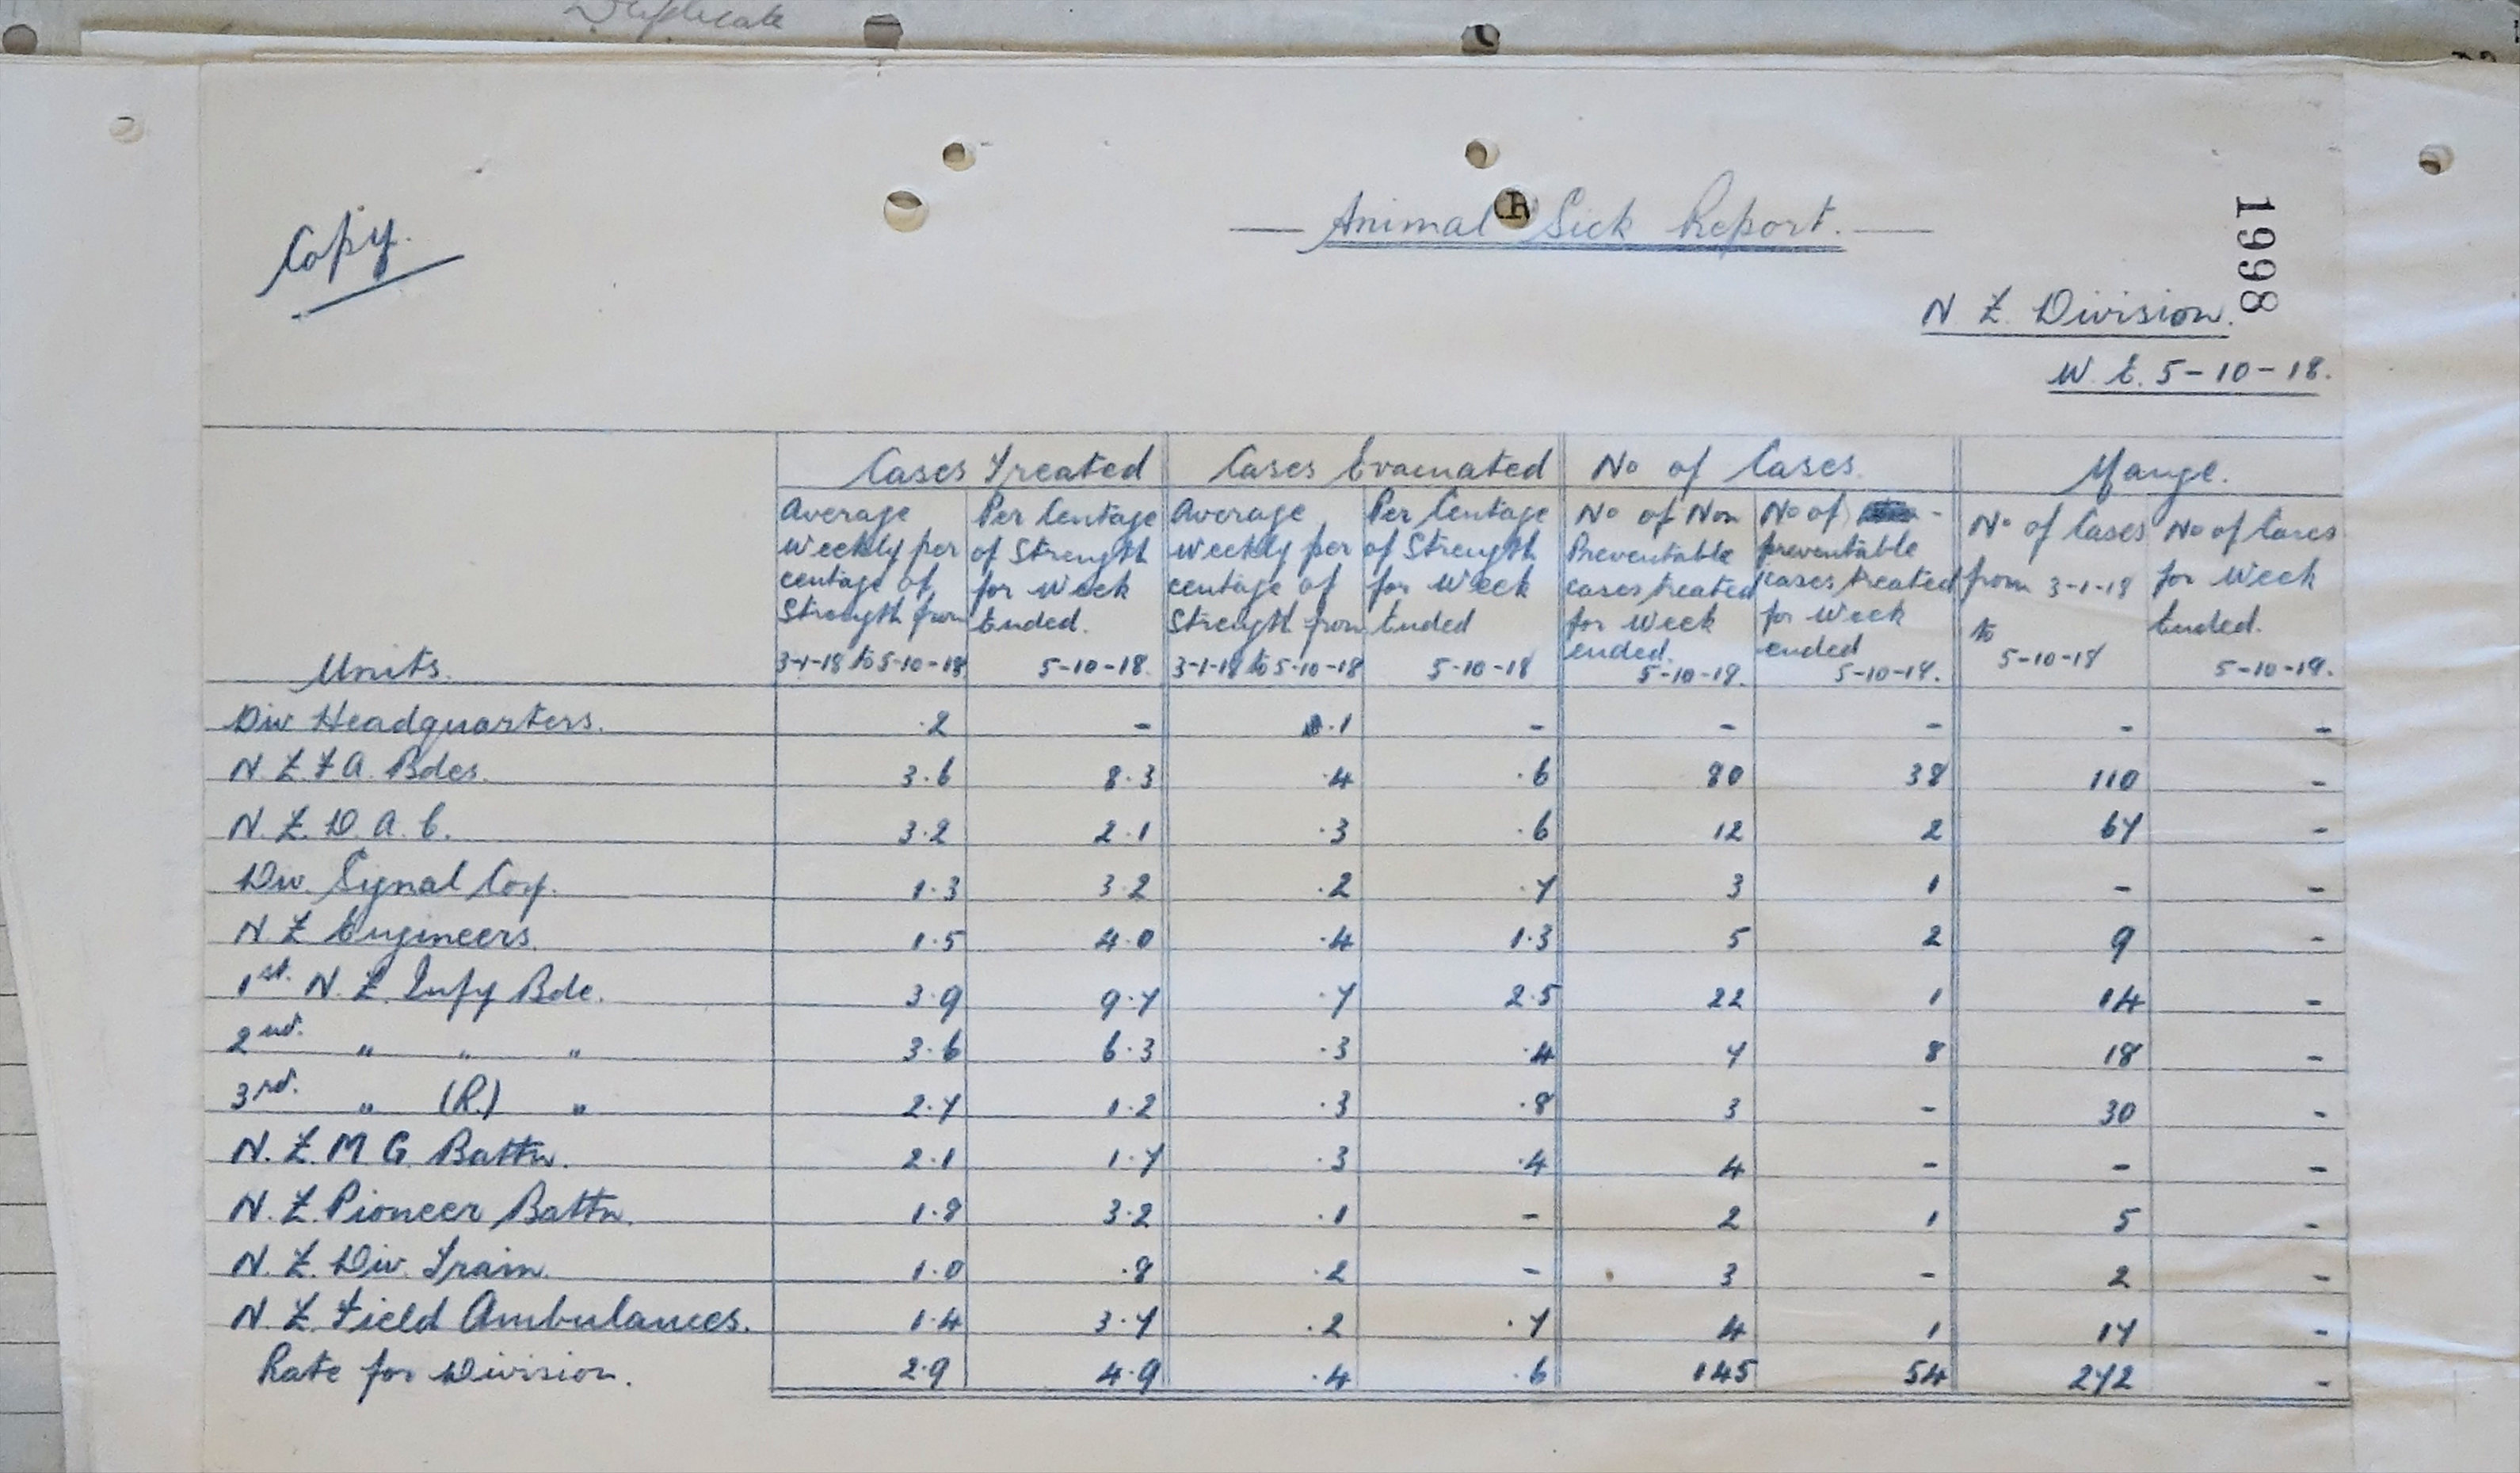 Duplicate
Copy.
R
Animal Sick Report.
1998
N Z Division.
W. E. 5-10-18.
Cases Treated Cases Evacuated No of Cases. Mange.
Units. Average Weekly per centage of Strength from 3-1-18 to 5-10-18 Per Centage of Strength for Week Ended. 5-10-18. Average Weekly per centage of Strength from 3-1-18 to 5-10-18 Per Centage of Strength for Week Ended 5-10-18 No of Non Preventable cases treated for Week ended. 5-10-18. No of preventable cases treated for Week ended 5-10-18. No of Cases from 3-1-18 to 5-10-18 No of Cases for Week Ended. 5-10-18.
Div Headquarters. .2 - .1 - - - - -
N. Z F A. Bdes. 3.6 8.3 .4 .6 80 38 110 -
N. Z. D. A. C. 3.2 2.1 .3 .6 12 2 67 -
Div. Signal Coy. 1.3 3.2 .2 .7 3 1 - -
N. Z Engineers. 1.5 4.0 .4 1.3 5 2 9 -
1st. N. Z. Infy Bde. 3.9 9.7 .7 2.5 22 1 14 -
2nd. " " " 3.6 6.3 .3 .4 7 8 18 -
3rd. " (R.) " 2.7 1.2 .3 .8 3 - 30 -
N. Z. M G. Battn. 2.1 1.7 .3 .4 4 - - -
N. Z. Pioneer Battn. 1.8 3.2 .1 - 2 1 5 -
N. Z. Div. Train. 1.0 .8 .2 - 3 - 2 -
N. Z. Field Ambulances. 1.4 3.7 .2 .7 4 1 17 -
Rate for Division. 2.9 4.9 .4 .6 145 54 272 -